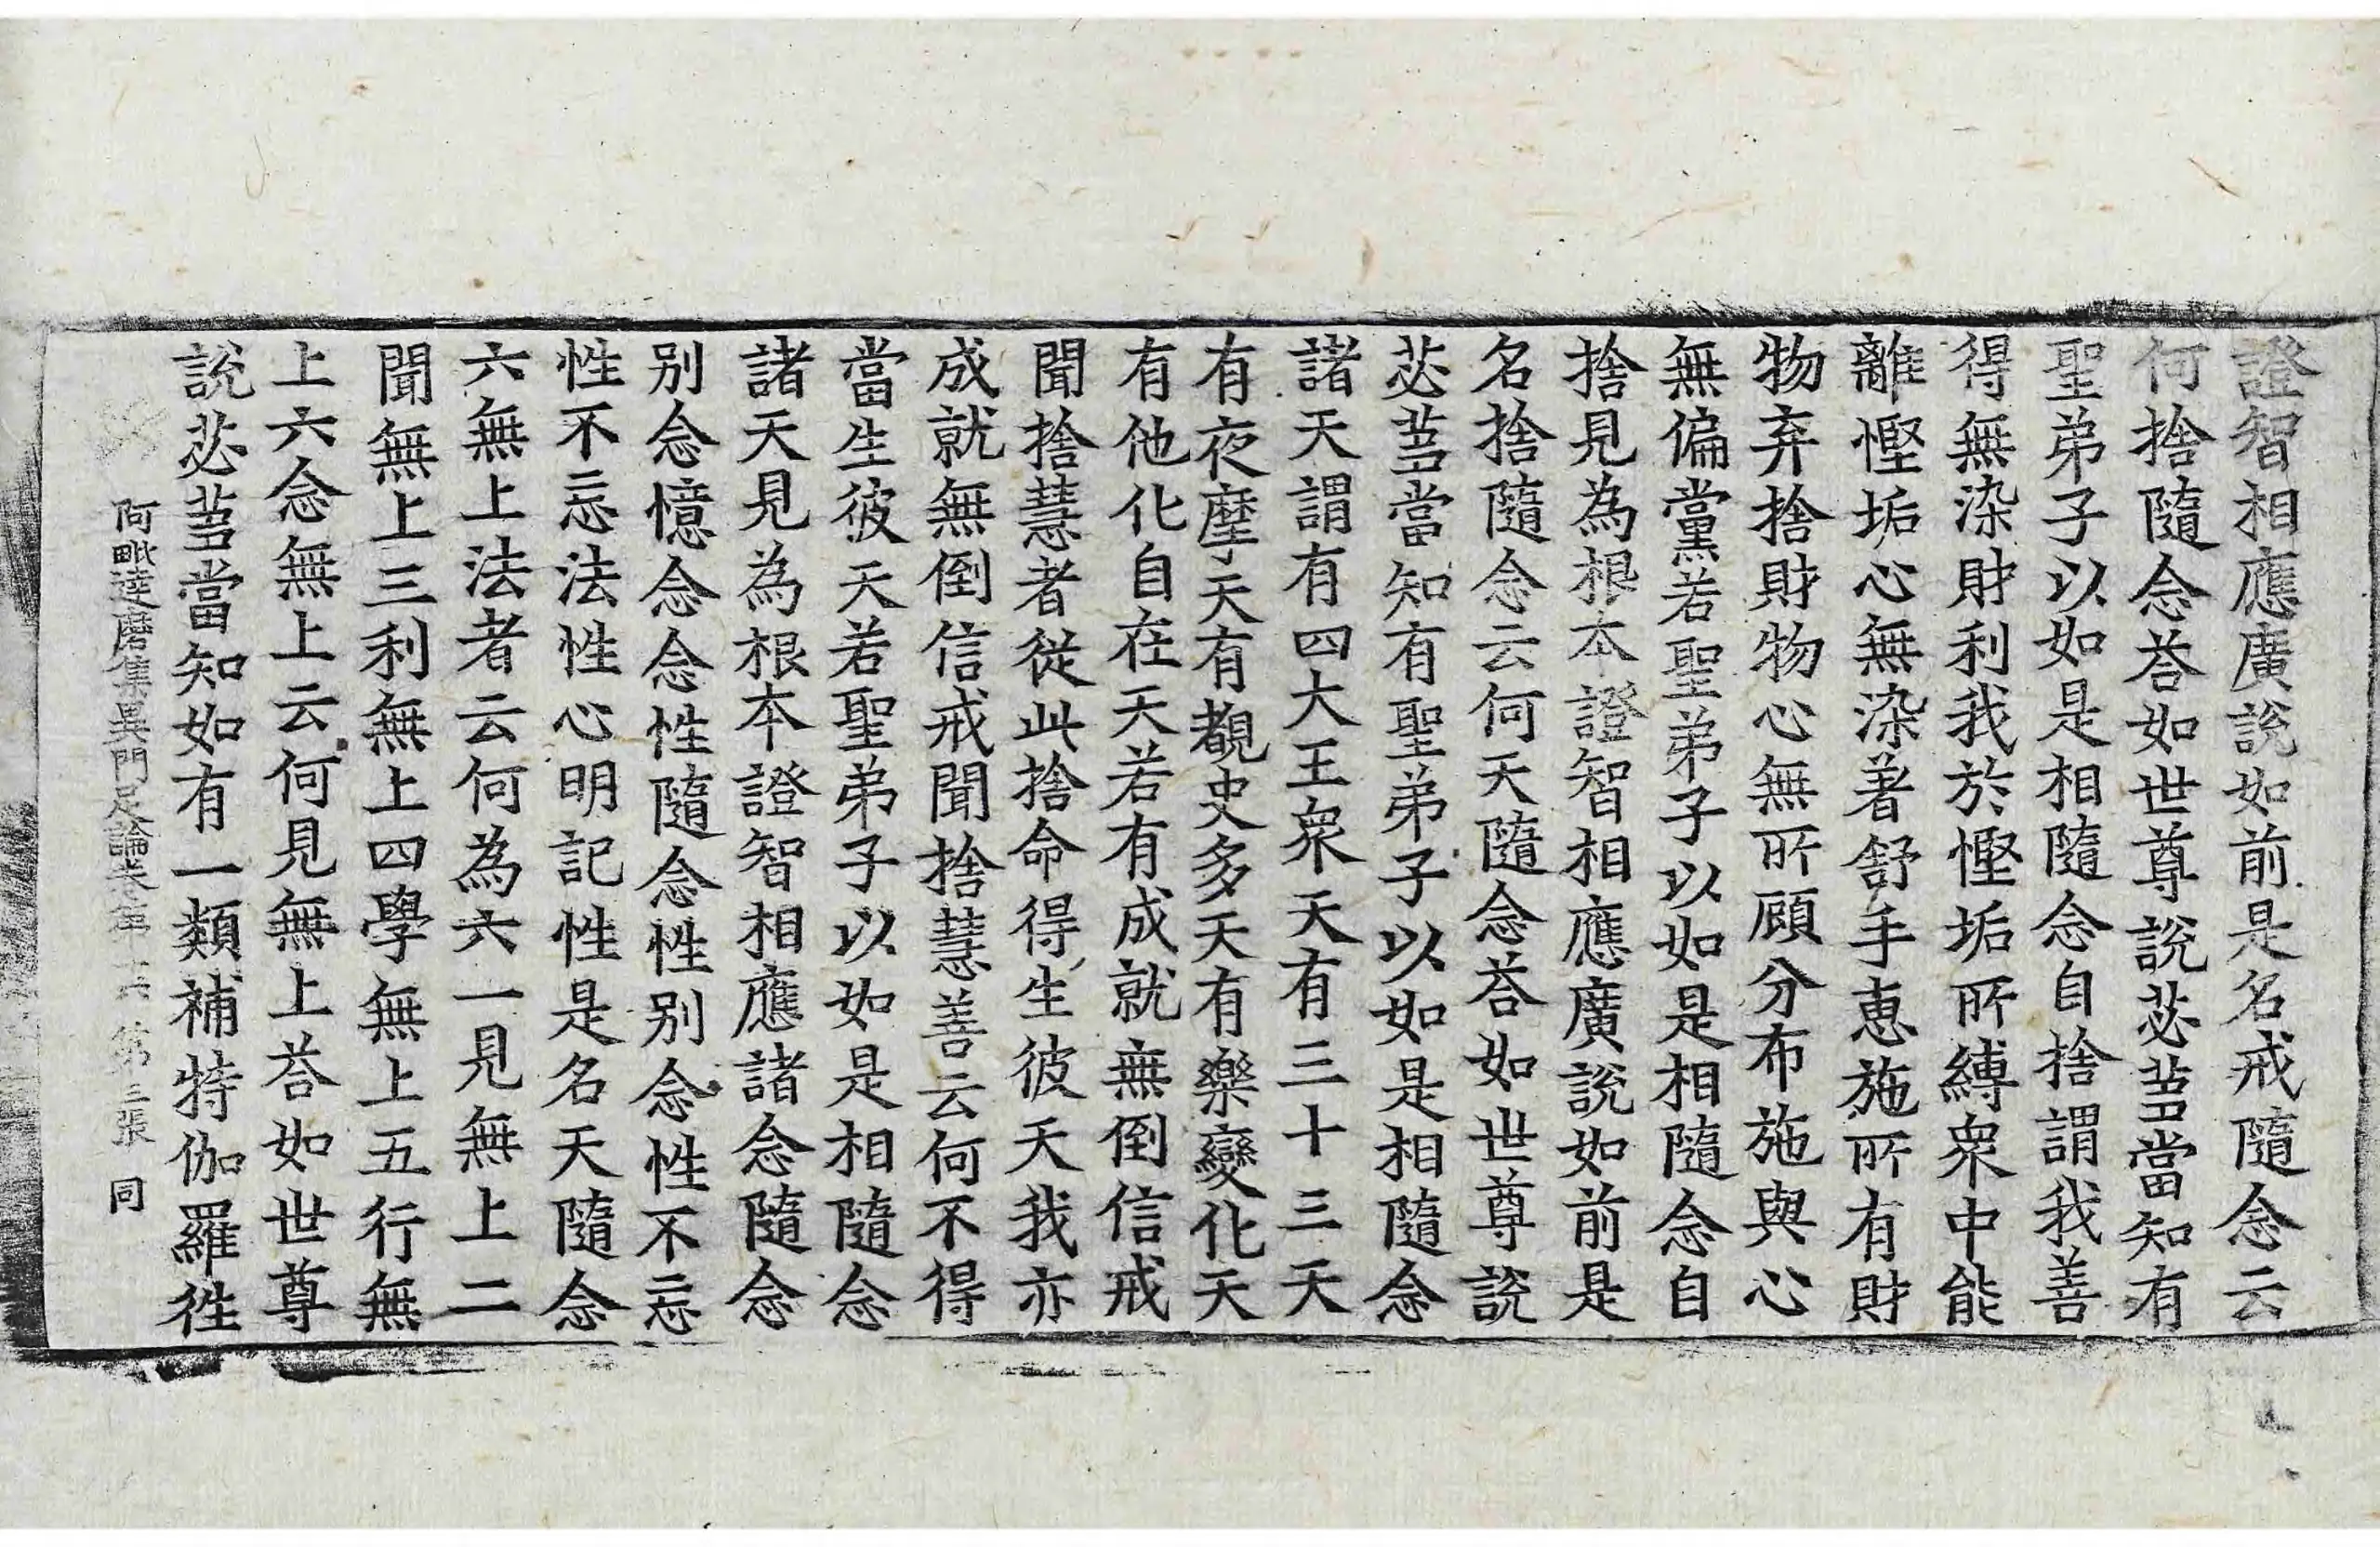 證智相應廣說如前是名戒隨念云
何捨隨念荅如世尊說苾芻當知有
聖弟子以如是相隨念自捨謂我善
得無染財利我於慳垢所縛衆中能
離慳垢心無染著舒手惠施所有財
物弃捨財物心無所顧分布施與心
無偏黨若聖弟子以如是相隨念自
捨見為根本證智相應廣說如前是
名捨隨念云何天隨念荅如世尊說
苾芻當知有聖弟子以如是相隨念
諸天謂有四大王衆天有三十三天
有夜摩天有覩史多天有樂變化天
有他化自在天若有成就無倒信戒
聞捨慧者從此捨命得生彼天我亦
成就無倒信戒聞捨慧善云何不得
當生彼天若聖弟子以如是相隨念
諸天見為根本證智相應諸念隨念
別念憶念念性隨念性別念性不忘
性不忘法性心明記性是名天隨念
六無上法者云何為六一見無上二
聞無上三利無上四學無上五行無
上六念無上云何見無上荅如世尊
說苾芻當知如有一類補特伽羅徃
阿毗達磨集異門足論卷第十六 第三張 同